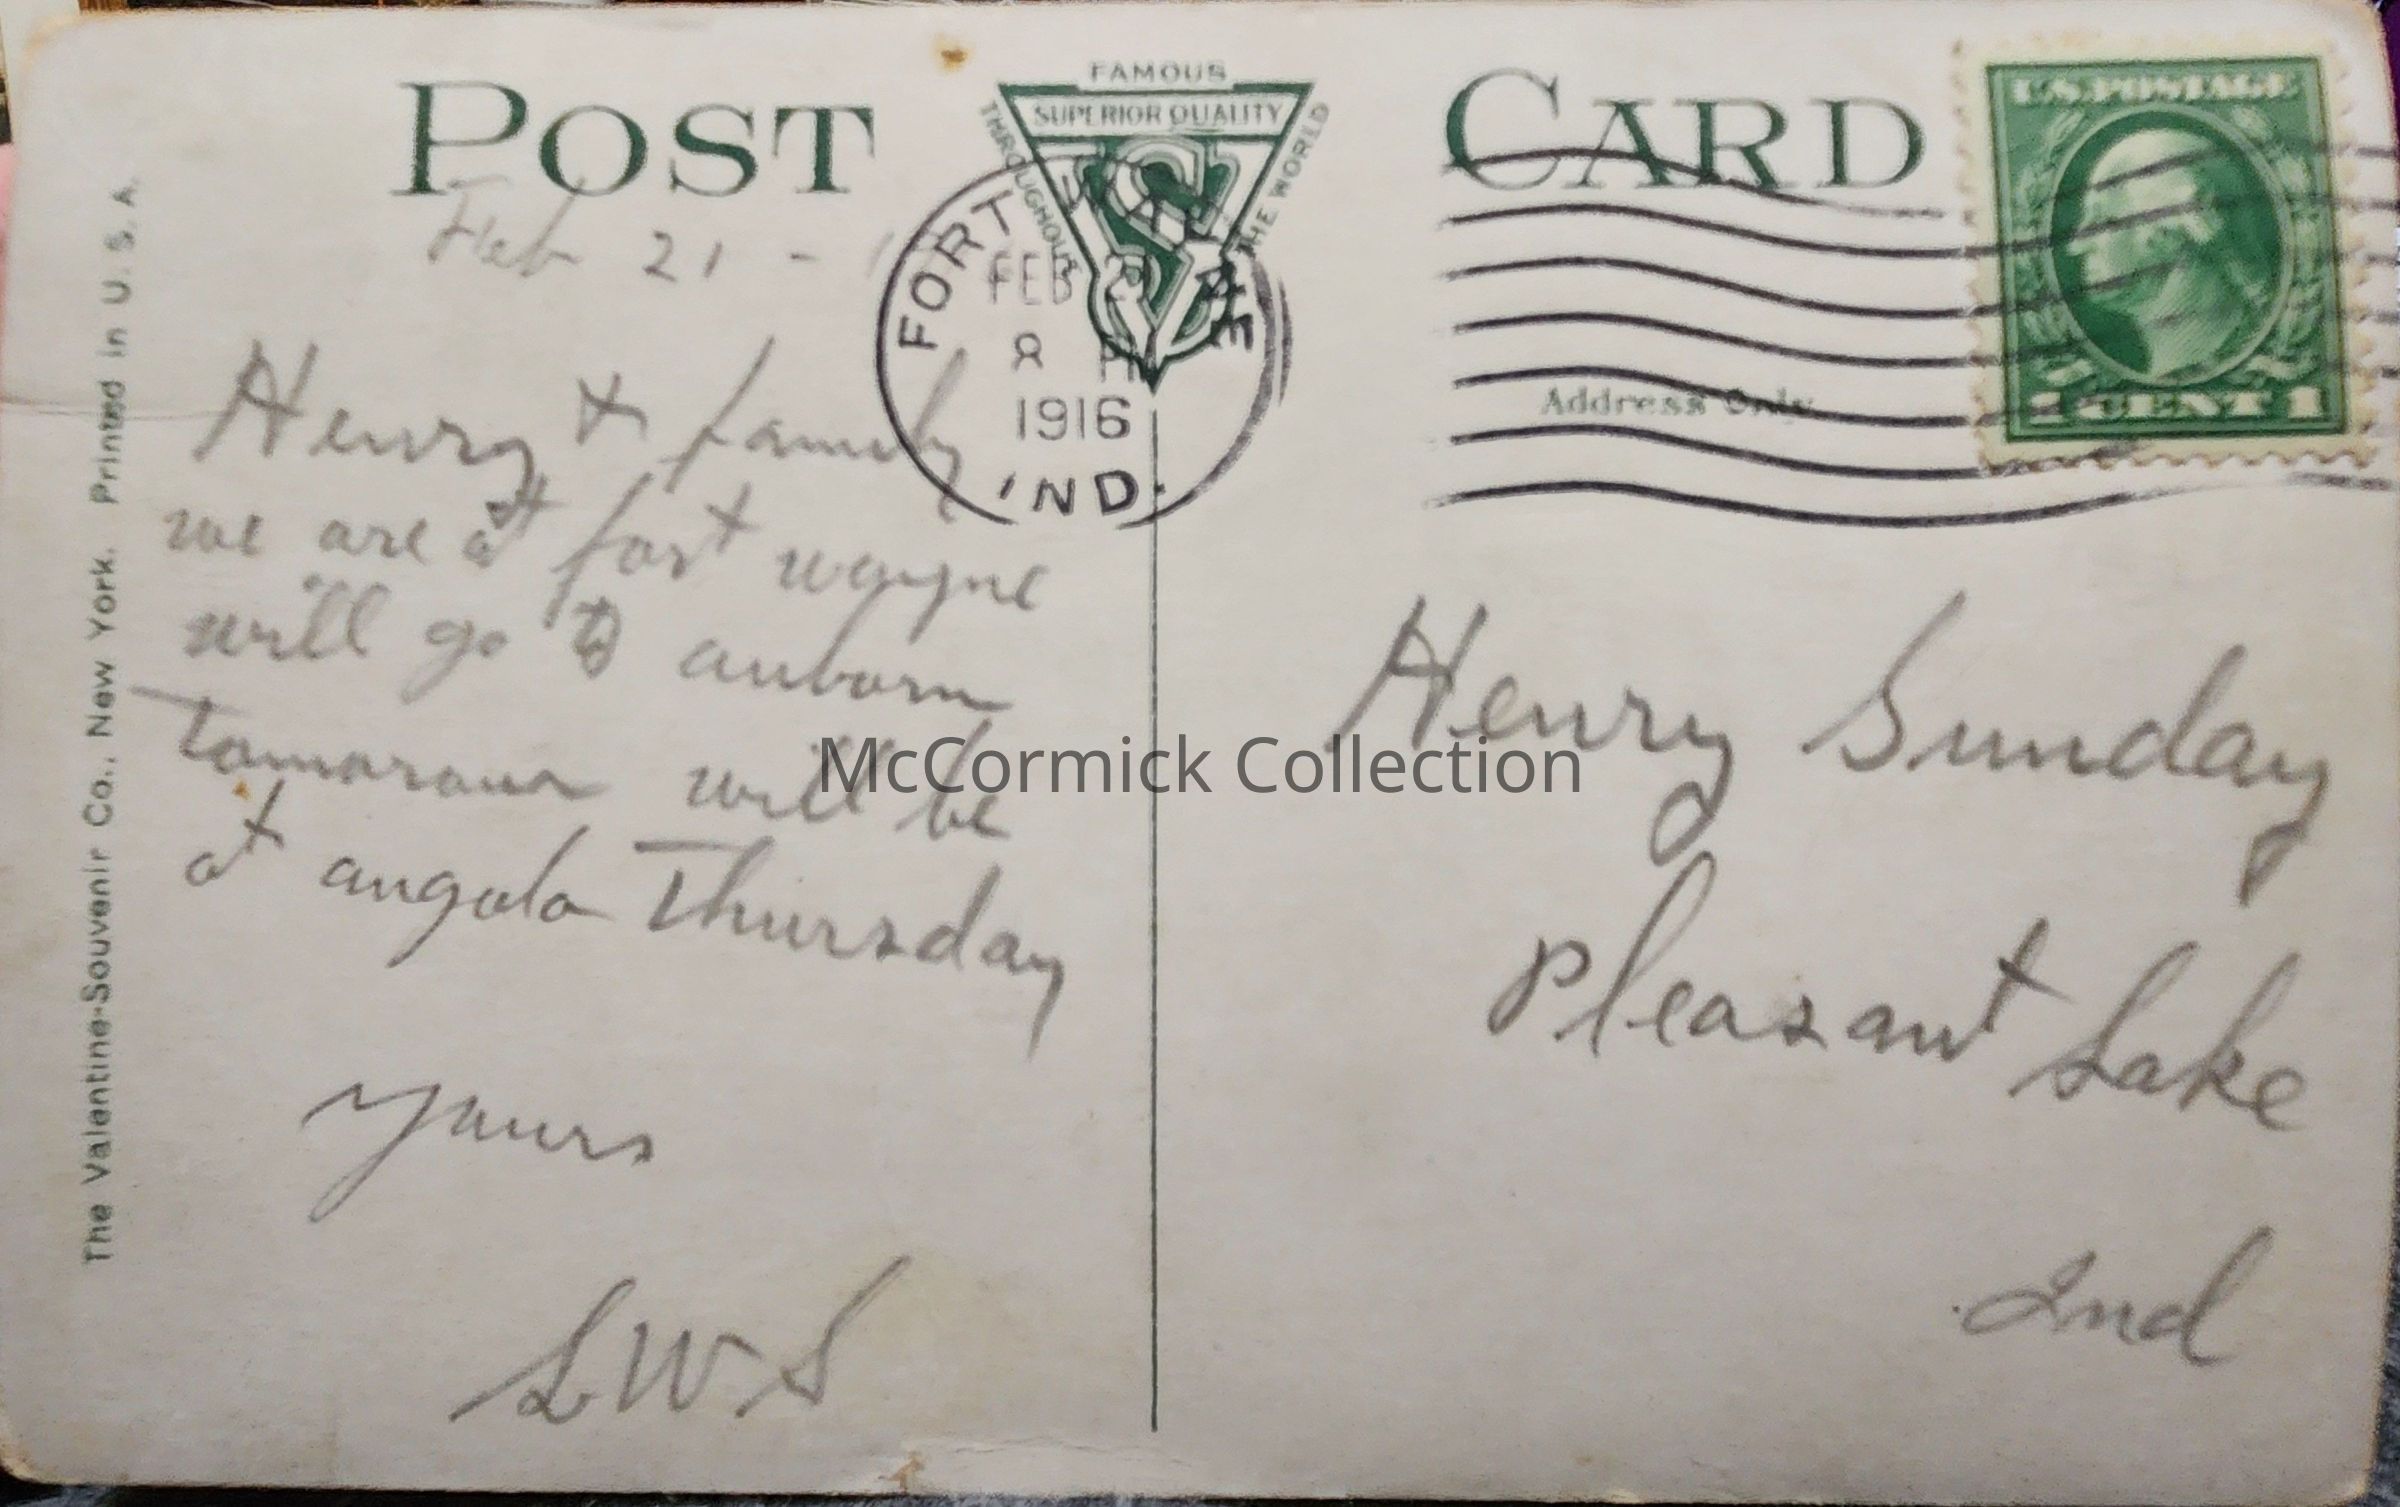 POST CARD
FAMOUS
SUPERIOR QUALITY
THROUGHOUT THE WORLD
U.S. POSTAGE
1 CENT 1
Feb 21 -
FORT WAYNE
FEB
8 P
1916
IND.
Address Only
Henry & family
we are at fort wayne
will go to auborn
tomorour will be
at angola Thursday
yours
L W S
Henry Sunday
Pleasant Lake
Ind
The Valentine-Souvenir Co., New York. Printed in U. S. A.
McCormick Collection